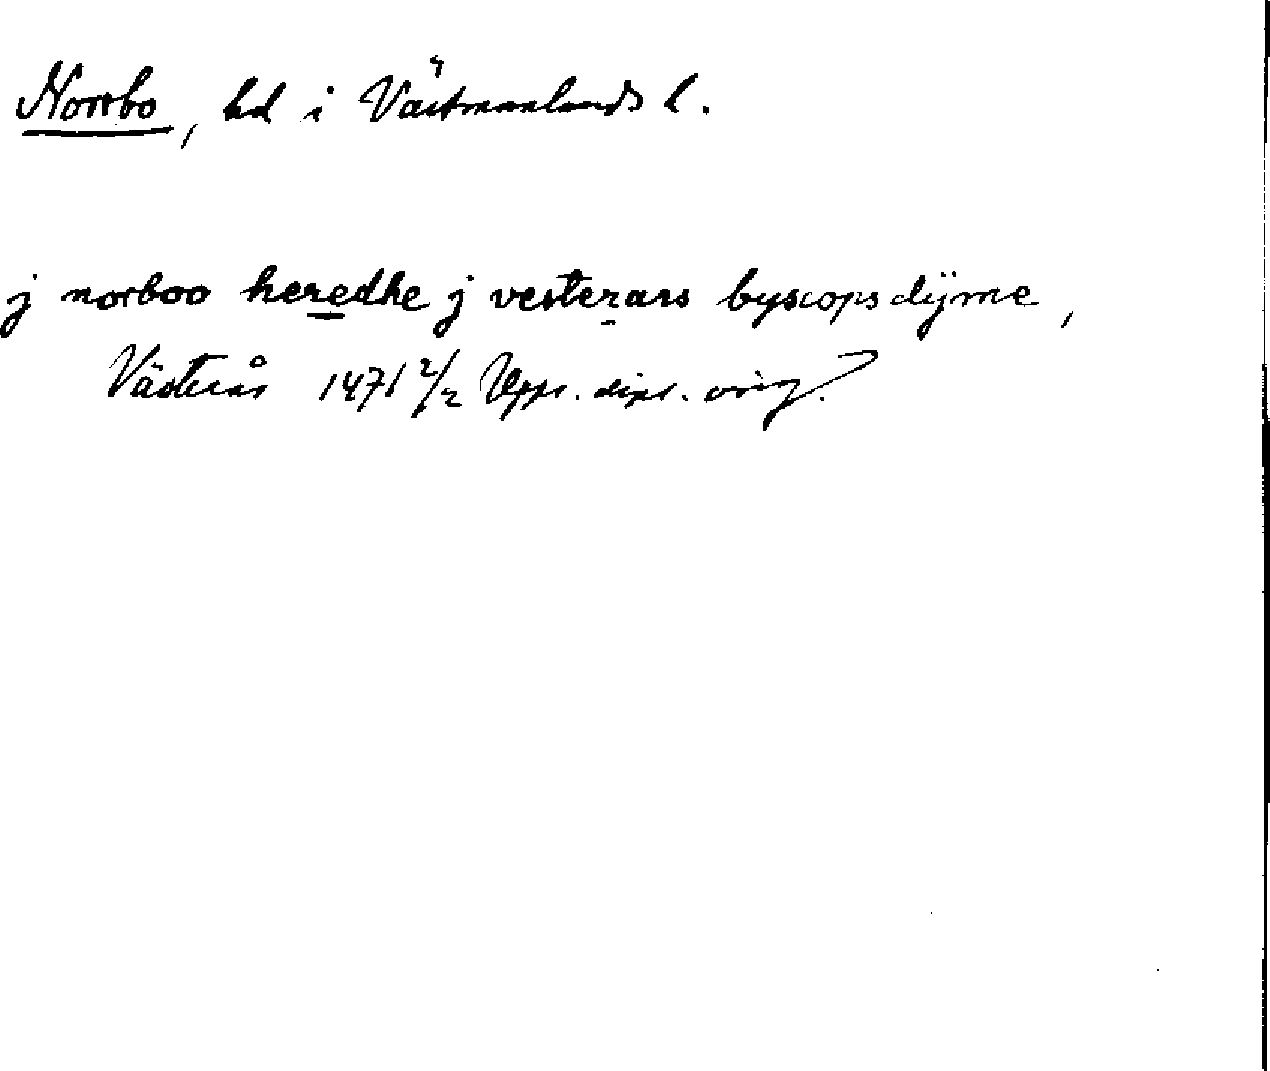 Norrbo, hd i Västmanlands l.
j norboo heredhe j vesterars byscops dÿme,
Västerås 1471 2/2 Upps. dipl. orig.